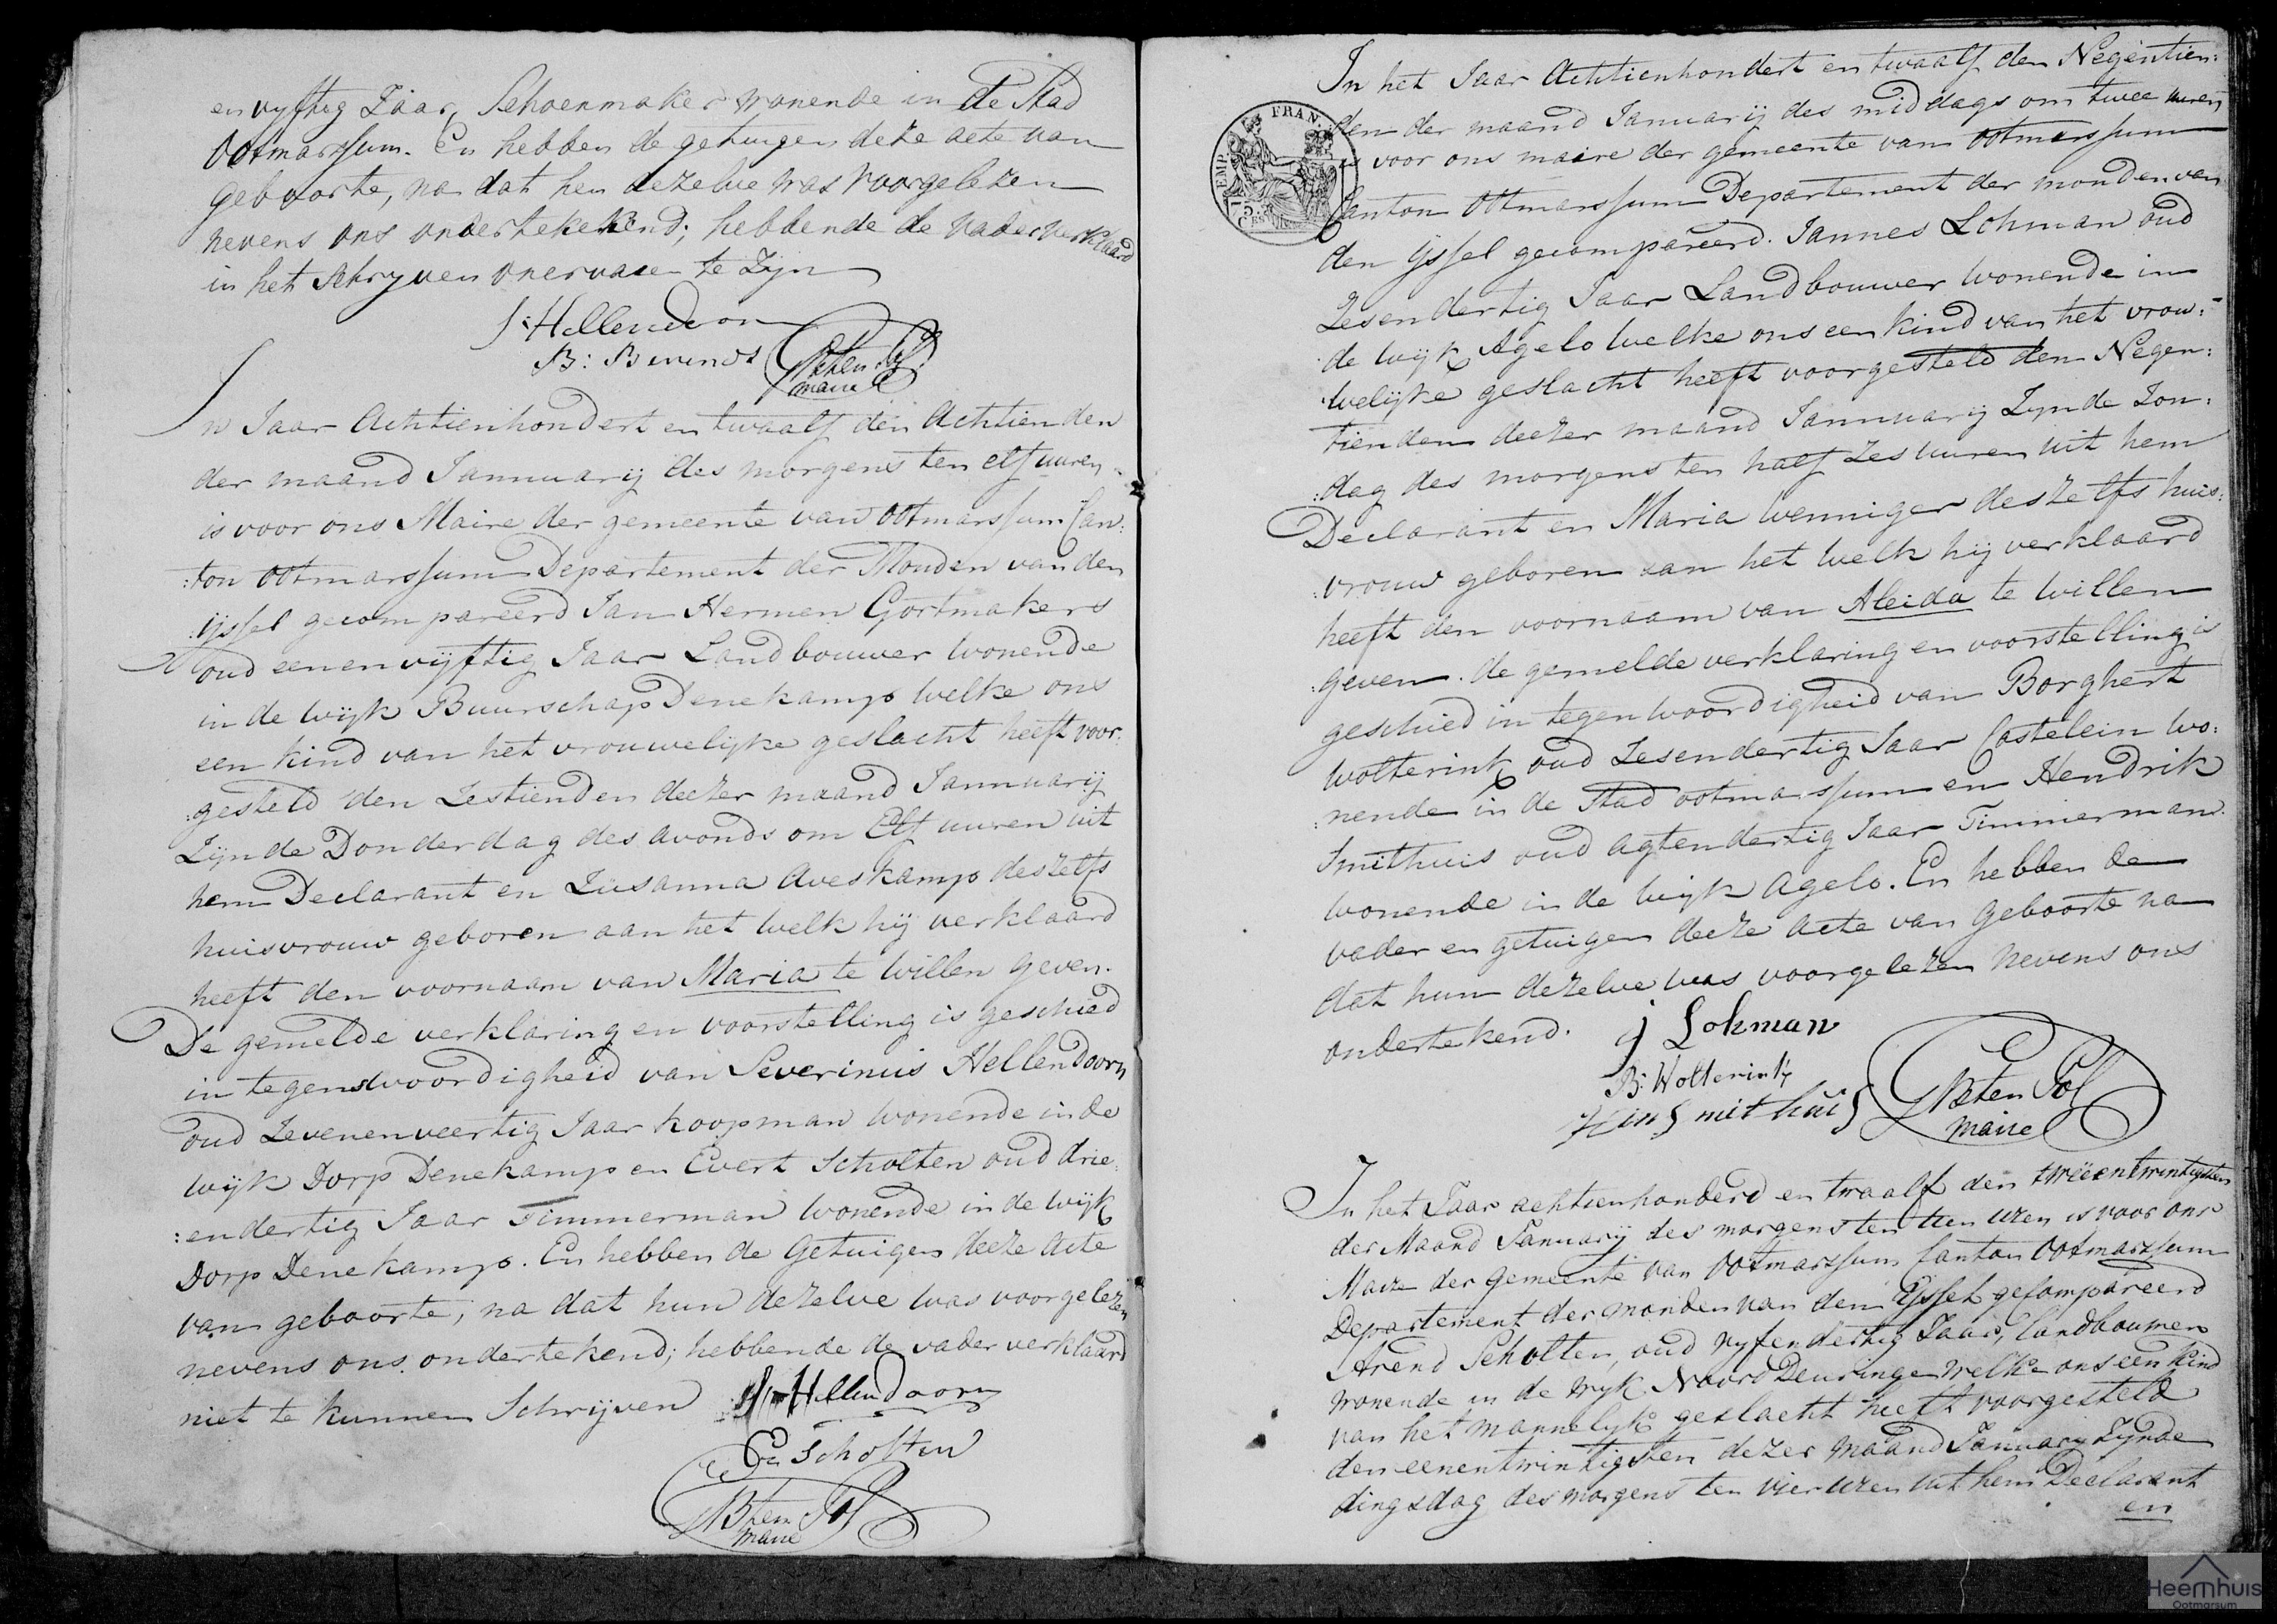 en vyfteg Zaar, Schoenmaker wonende in de Stad
Ootmarssum. En hebben de getuigen deze acte van
geboorte, na dat hen dezelve was Voorgelezen
nevens ons ondertekekend; hebbende de Vader verklaard
in het schryven onervaren te Zyn
S: Hellendoorn
B: Berends
maire
In Jaar Achtienhondert en twaalf den Achtienden
der maand Jannuarij des morgens ten elf uuren
is voor ons Maire der gemeente van Ootmarssum Can:
:ton Ootmarssum Departement der Monden van den
:ijssel gecompareerd Jan Hermen Gortmakers
oud eenenvijftig Jaar Landbouwer wonende
in de wijk Buurschap Denekamp welke ons
een kind van het vrouwelijke geslacht heeft voor:
:gesteld den Zestienden deezer maand Jannuarij
Zijnde Donderdag des avonds om Elf uuren uit
hem Declarant en Zusanna Aveskamp deszelfs
huisvrouw geboren aan het welk hij verklaard
heeft den voornaam van Maria te willen geven.
De gemelde verklaring en voorstelling is geschied
in tegenswoordigheid van Severinus Hellendoorn
oud Zevenenveertig Jaar koopman wonende in de
wijk Dorp Denekamp en Evert Scholten oud drie:
:endertig Jaar Timmerman wonende in de wijk
Dorp Denekamp. En hebben de Getuigen deeze Acte
van geboorte, na dat hun dezelve was voorgelezen
nevens ons ondertekend; hebbende de vader verklaard
niet te kunnen Schrijven Hellendoorn
E Scholten
maire
In het Jaar Achtienhondert en twaalf den Negentien:
den der maand Januarij des middags om twee uuren
is voor ons maire der gemeente van Ootmarssum
FRAN.
EMP.
75
CES
Canton Ottmarssum Departement der monden van
den ijssel gecompareerd. Jannes Lohman oud
Zesendertig Jaar Landbouwer wonende in
de wijk Agelo welke ons een kind van het vrou:
:welijke geslacht heeft voorgesteld den Negen:
tienden deezer maand Jannuarij Zynde Zon:
:dag des morgens ten half Zes uuren uit hem
Declarant en Maria Wenniger deszelfs huis:
:vrouw geboren aan het welk hij verklaard
heeft den voornaam van Aleida te willen
:geven. de gemelde verklaring en voorstelling is
geschied in tegenwoordigheid van Borghert
Wolterink oud Zesendertig Jaar Castelein wo:
:nende in de Stad ootmarssum en Hendrik
Smithuis oud Agtendertig Jaar Timmerman
wonende in de wijk Agelo. En hebben de
vader en getuigen deeze Acte van Geboorte na
dat hun dezelve was voorgelezen nevens ons
ondertekend.
j Lohman
B: Wolterink
Hin Smithuis
maire
In het Jaar achtienhonderd en twaalf den tweeentwintigsten
der Maand January des morgens ten tien uren is voor ons
Maire der gemeente van Ootmarssum Canton Ootmarssum
Departement der monden van den Eijssel gecompareerd
Arend Scholten, oud vyfendertig Zaar, landbouwer
wonende in de wyk Noord Deuringe welke ons een kind
van het mannelyk geslacht heeft voorgesteld
den eenentwintigsten dezer maand January Zynde
dingsdag des morgens ten vier uren uit hem Declarant
en
Heemhuis
Ootmarsum